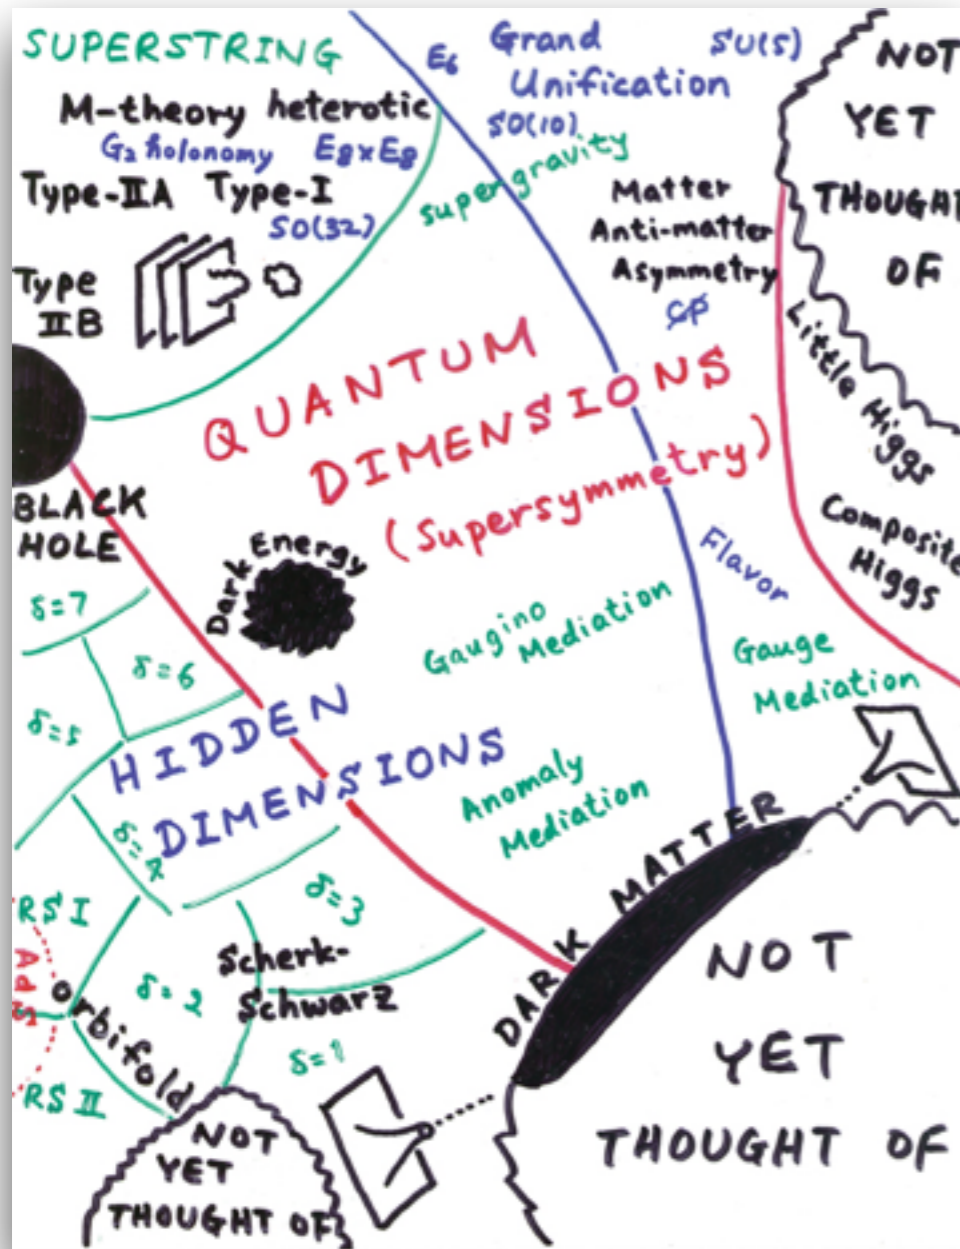 SUPERSTRING
M-theory heterotic
G2 holonomy E8xE8
Type-IIA Type-I
SO(32)
Type
IIB
E6
Grand
Unification
SU(5)
SO(10)
supergravity
Matter
Anti-matter
Asymmetry
CP
NOT
YET
THOUGHT
OF
Little Higgs
Composite
Higgs
QUANTUM
DIMENSIONS
(Supersymmetry)
BLACK
HOLE
Dark Energy
Flavor
Gaugino
Mediation
Gauge
Mediation
Anomaly
Mediation
δ=7
δ=6
δ=5
HIDDEN
DIMENSIONS
δ=4
δ=3
DARK MATTER
RS I
AdS
orbifold
δ=2
Scherk-
Schwarz
δ=1
RS II
NOT
YET
THOUGHT OF
NOT
YET
THOUGHT OF